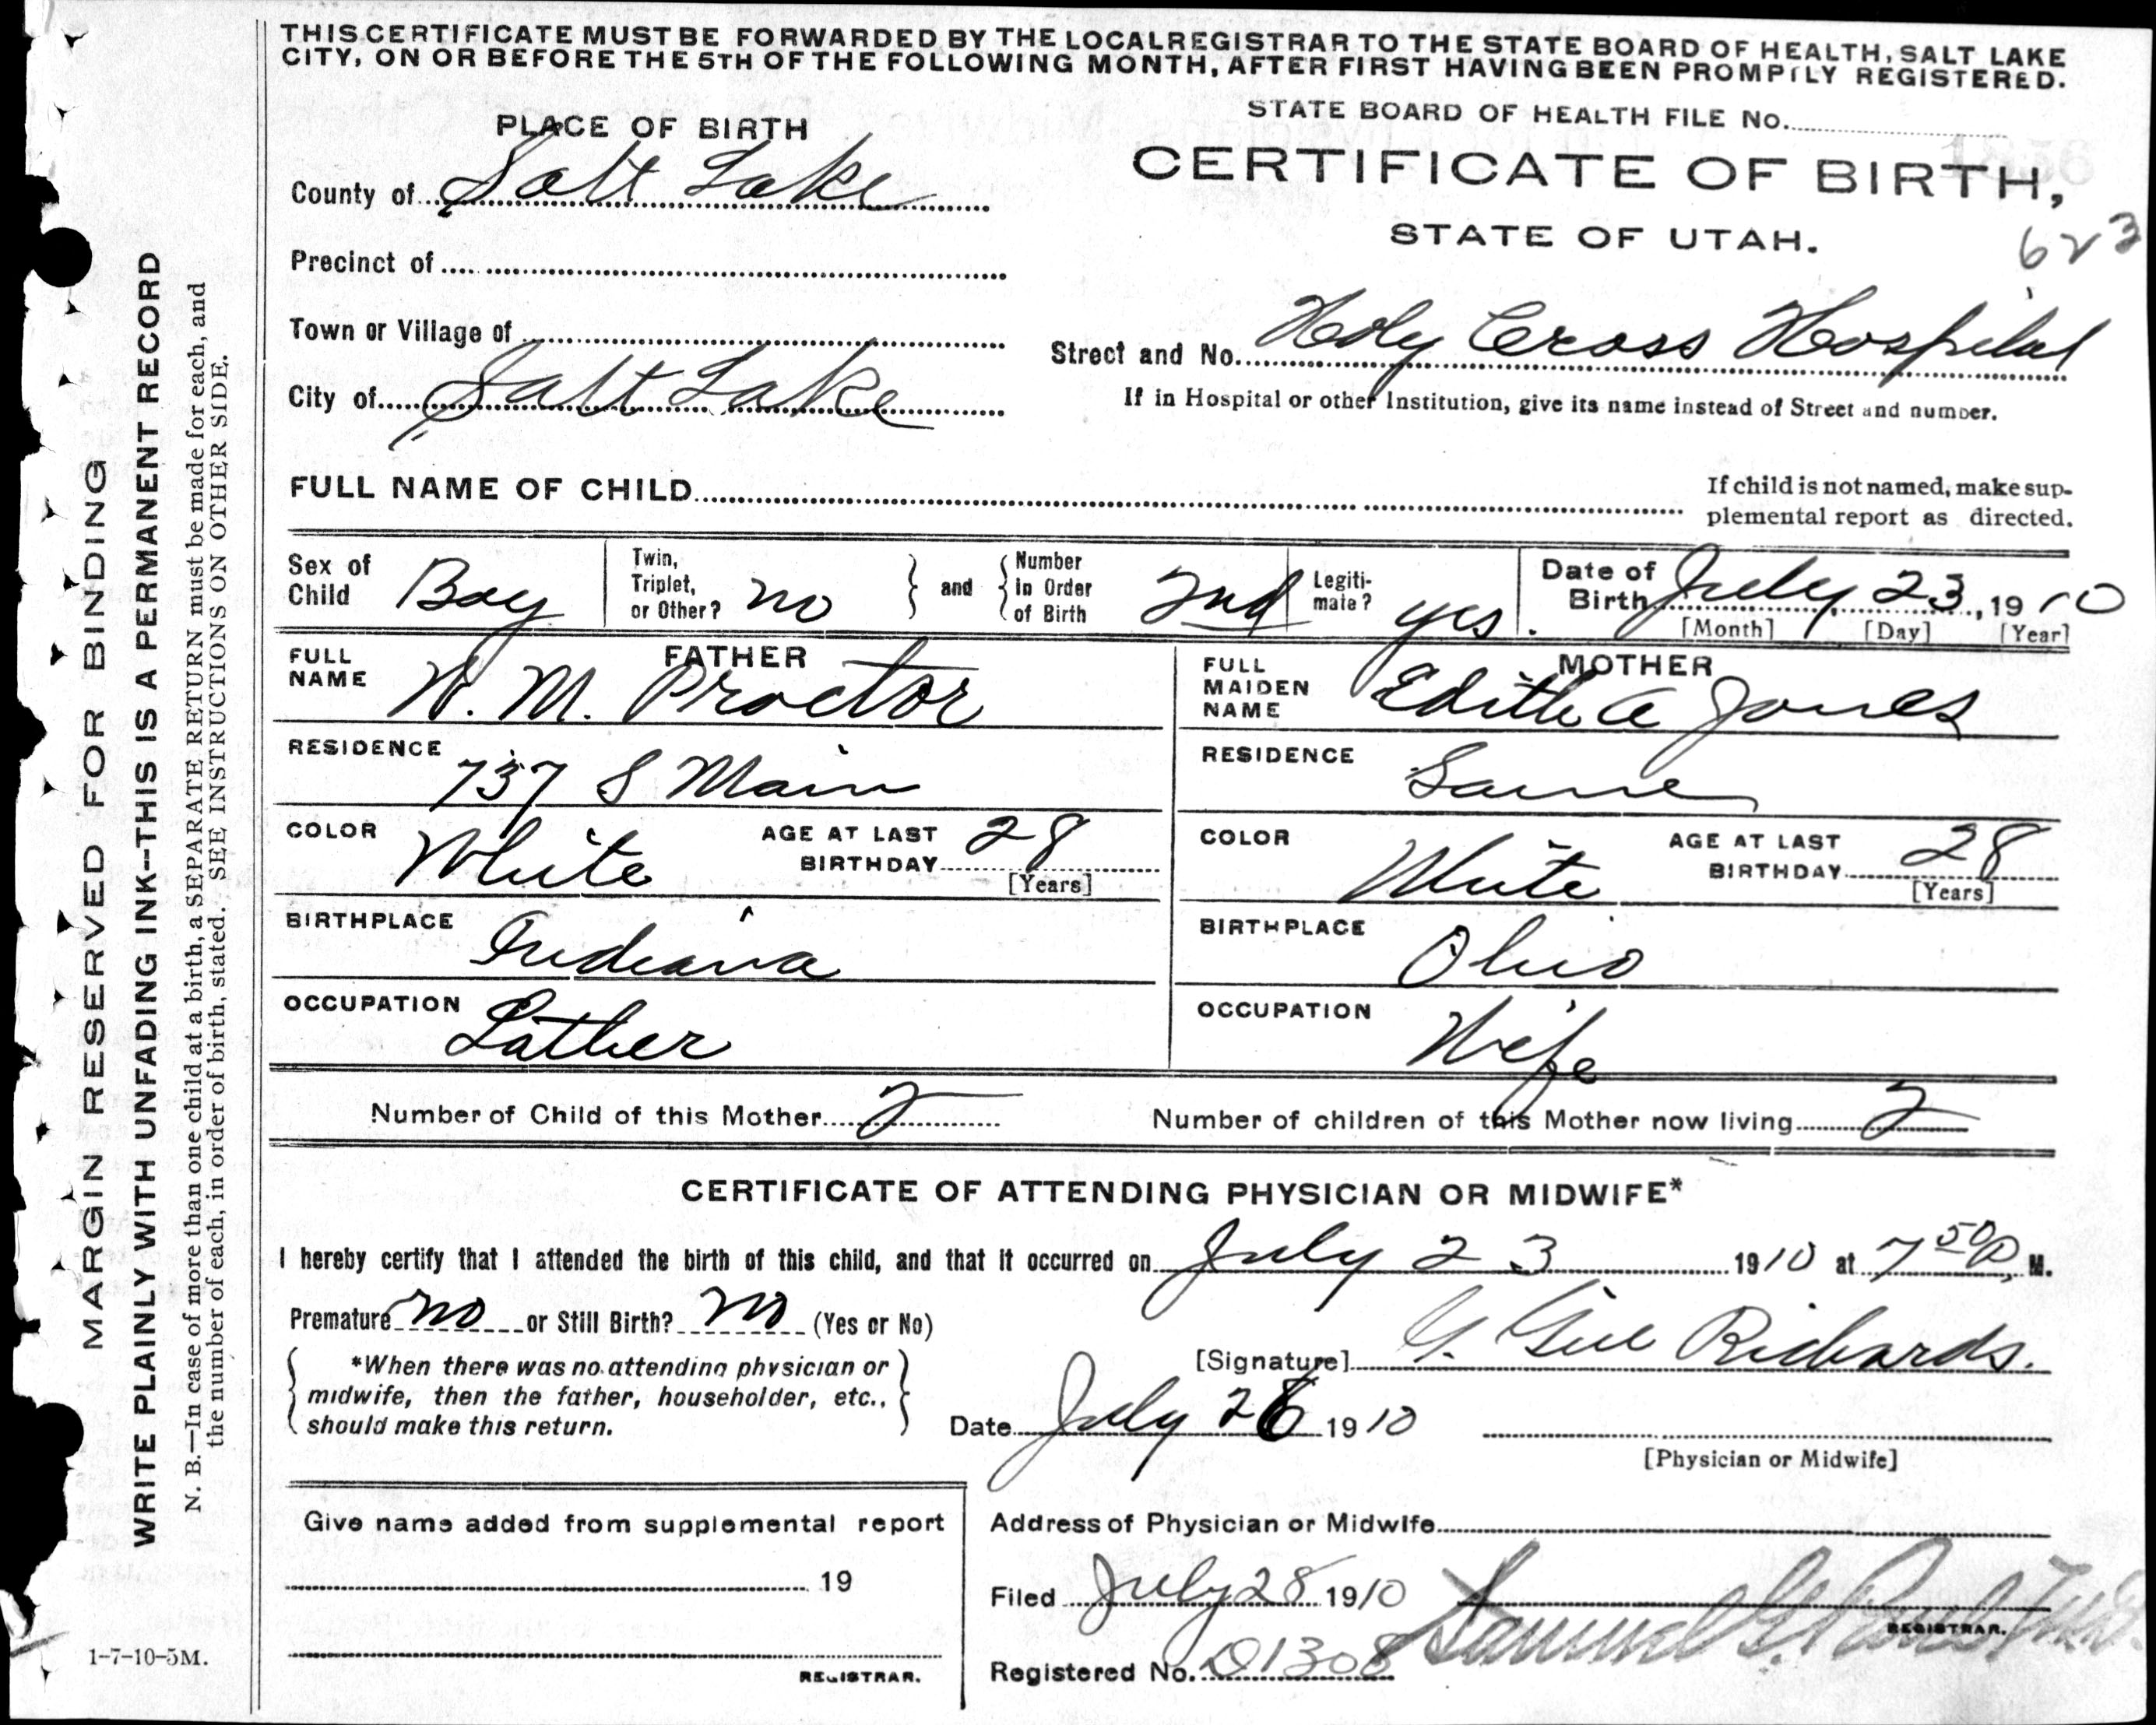 THIS CERTIFICATE MUST BE FORWARDED BY THE LOCAL REGISTRAR TO THE STATE BOARD OF HEALTH, SALT LAKE
CITY, ON OR BEFORE THE 5TH OF THE FOLLOWING MONTH, AFTER FIRST HAVING BEEN PROMPTLY REGISTERED.
STATE BOARD OF HEALTH FILE No.
PLACE OF BIRTH
CERTIFICATE OF BIRTH,
County of Salt Lake
STATE OF UTAH.
623
Precinct of
Town or Village of
Street and No. Holy Cross Hospital
City of Salt Lake
If in Hospital or other Institution, give its name instead of Street and number.
FULL NAME OF CHILD
If child is not named, make sup-
plemental report as directed.
Sex of Child Boy
Twin, Triplet, or Other? no
and
Number in Order of Birth 2nd
Legiti-mate? yes.
Date of Birth July 23, 1910
[Month] [Day] [Year]
FATHER
FULL NAME W. M. Proctor
MOTHER
FULL MAIDEN NAME Edith A Jones
RESIDENCE 737 S Main
RESIDENCE Same
COLOR White
AGE AT LAST BIRTHDAY 28
[Years]
COLOR White
AGE AT LAST BIRTHDAY 28
[Years]
BIRTHPLACE Indiana
BIRTHPLACE Ohio
OCCUPATION Lather
OCCUPATION Wife
Number of Child of this Mother 2
Number of children of this Mother now living 2
CERTIFICATE OF ATTENDING PHYSICIAN OR MIDWIFE*
I hereby certify that I attended the birth of this child, and that it occurred on July 23 1910 at 7 50 P. M.
Premature no or Still Birth? no (Yes or No)
[Signature] G. Gill Richards.
*When there was no attending physician or
midwife, then the father, householder, etc.,
should make this return.
Date July 26 1910
[Physician or Midwife]
Give name added from supplemental report
19
REGISTRAR.
Address of Physician or Midwife
Filed July 28 1910
Samuel G. Paul M.D.
REGISTRAR.
Registered No. 01308
MARGIN RESERVED FOR BINDING
WRITE PLAINLY WITH UNFADING INK--THIS IS A PERMANENT RECORD
N. B.—In case of more than one child at a birth, a SEPARATE RETURN must be made for each, and
the number of each, in order of birth, stated. SEE INSTRUCTIONS ON OTHER SIDE.
1-7-10-5M.